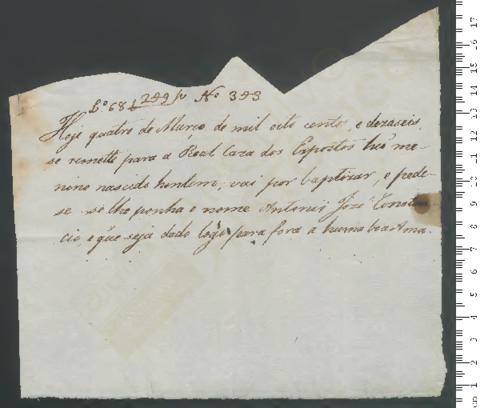 Lº 68 f 299 fv Nº 393
Hoje quatro de Março de mil oito centos, e dezaseis
se remette para a Real Caza dos Expostos hũ me-
nino nascido hontem, vai por baptizar, e pede-
se se lhe ponha o nome Antonio José
cio, e que seja dado logo para fora a huma boa Ama.